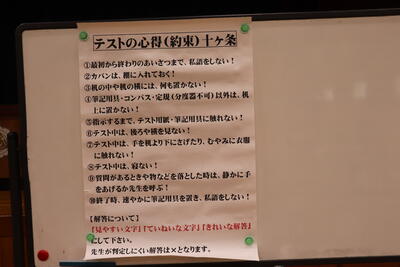 テストの心得(約束)十ヶ条
①最初から終わりのあいさつまで、私語をしない!
②カバンは、棚に入れておく!
③机の中や机の横には、何も置かない!
④筆記用具・コンパス・定規(分度器不可)以外は、机
上に置かない!
⑤指示するまで、テスト用紙・筆記用具に触れない!
⑥テスト中は、後ろや横を見ない!
⑦テスト中は、手を机より下にさげたり、むやみに衣服
に触れない!
⑧テスト中は、寝ない!
⑨質問があるときや物などを落とした時は、静かに手
をあげるか先生を呼ぶ!
⑩終了時、速やかに筆記用具を置き、私語をしない!
【解答について】
『見やすい文字』『ていねいな文字』『きれいな解答』
にして下さい。
先生が判定しにくい解答は×となります。